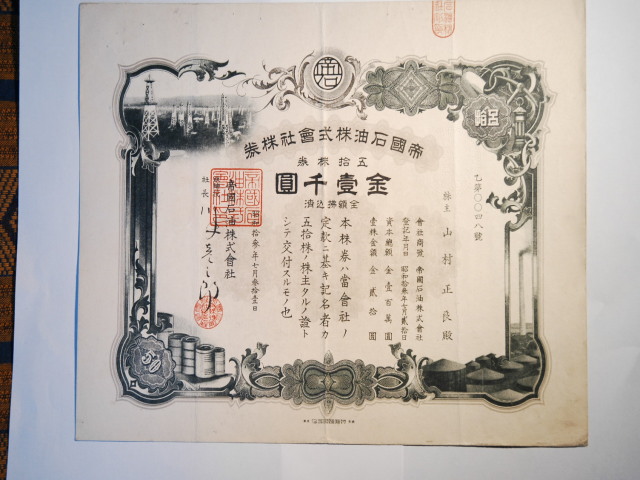 帝國石油株式會社株券
五拾株券
金壹千圓
全額拂込濟
乙第〇〇四八號
株主 山村正良殿
會社商號 帝國石油株式會社
登記年月日 昭和拾參年七月貳拾日
資本總額 金壹百萬圓
壹株金額 金貳拾圓
本株券ハ當會社ノ
定款ニ基キ記名者カ
五拾株ノ株主タルノ證ト
シテ交付スルモノ也
昭和拾參年七月參拾壹日
帝國石油株式會社
社長
50